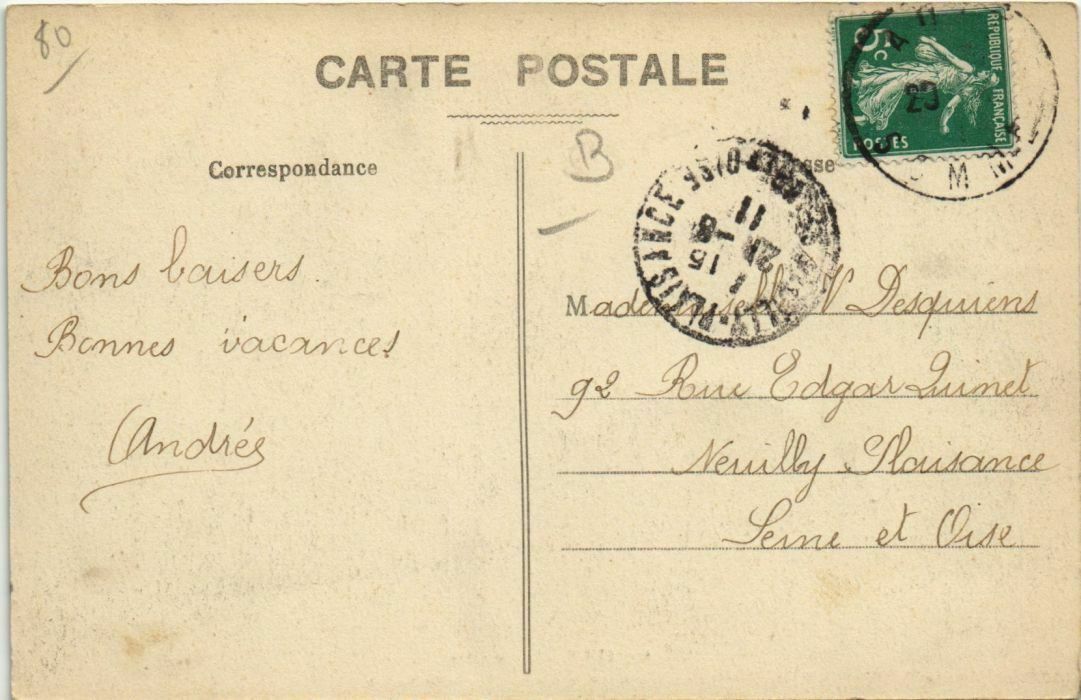 80
CARTE POSTALE
B
Correspondance
Bons baisers.
Bonnes vacances
Andrée
5c
REPUBLIQUE FRANÇAISE
POSTES
29
SOMME
NEUILLY-PLAISANCE
Mademoiselle N Desquiens
92 Rue Edgar Quinet
Neuilly Plaisance
Seine et Oise